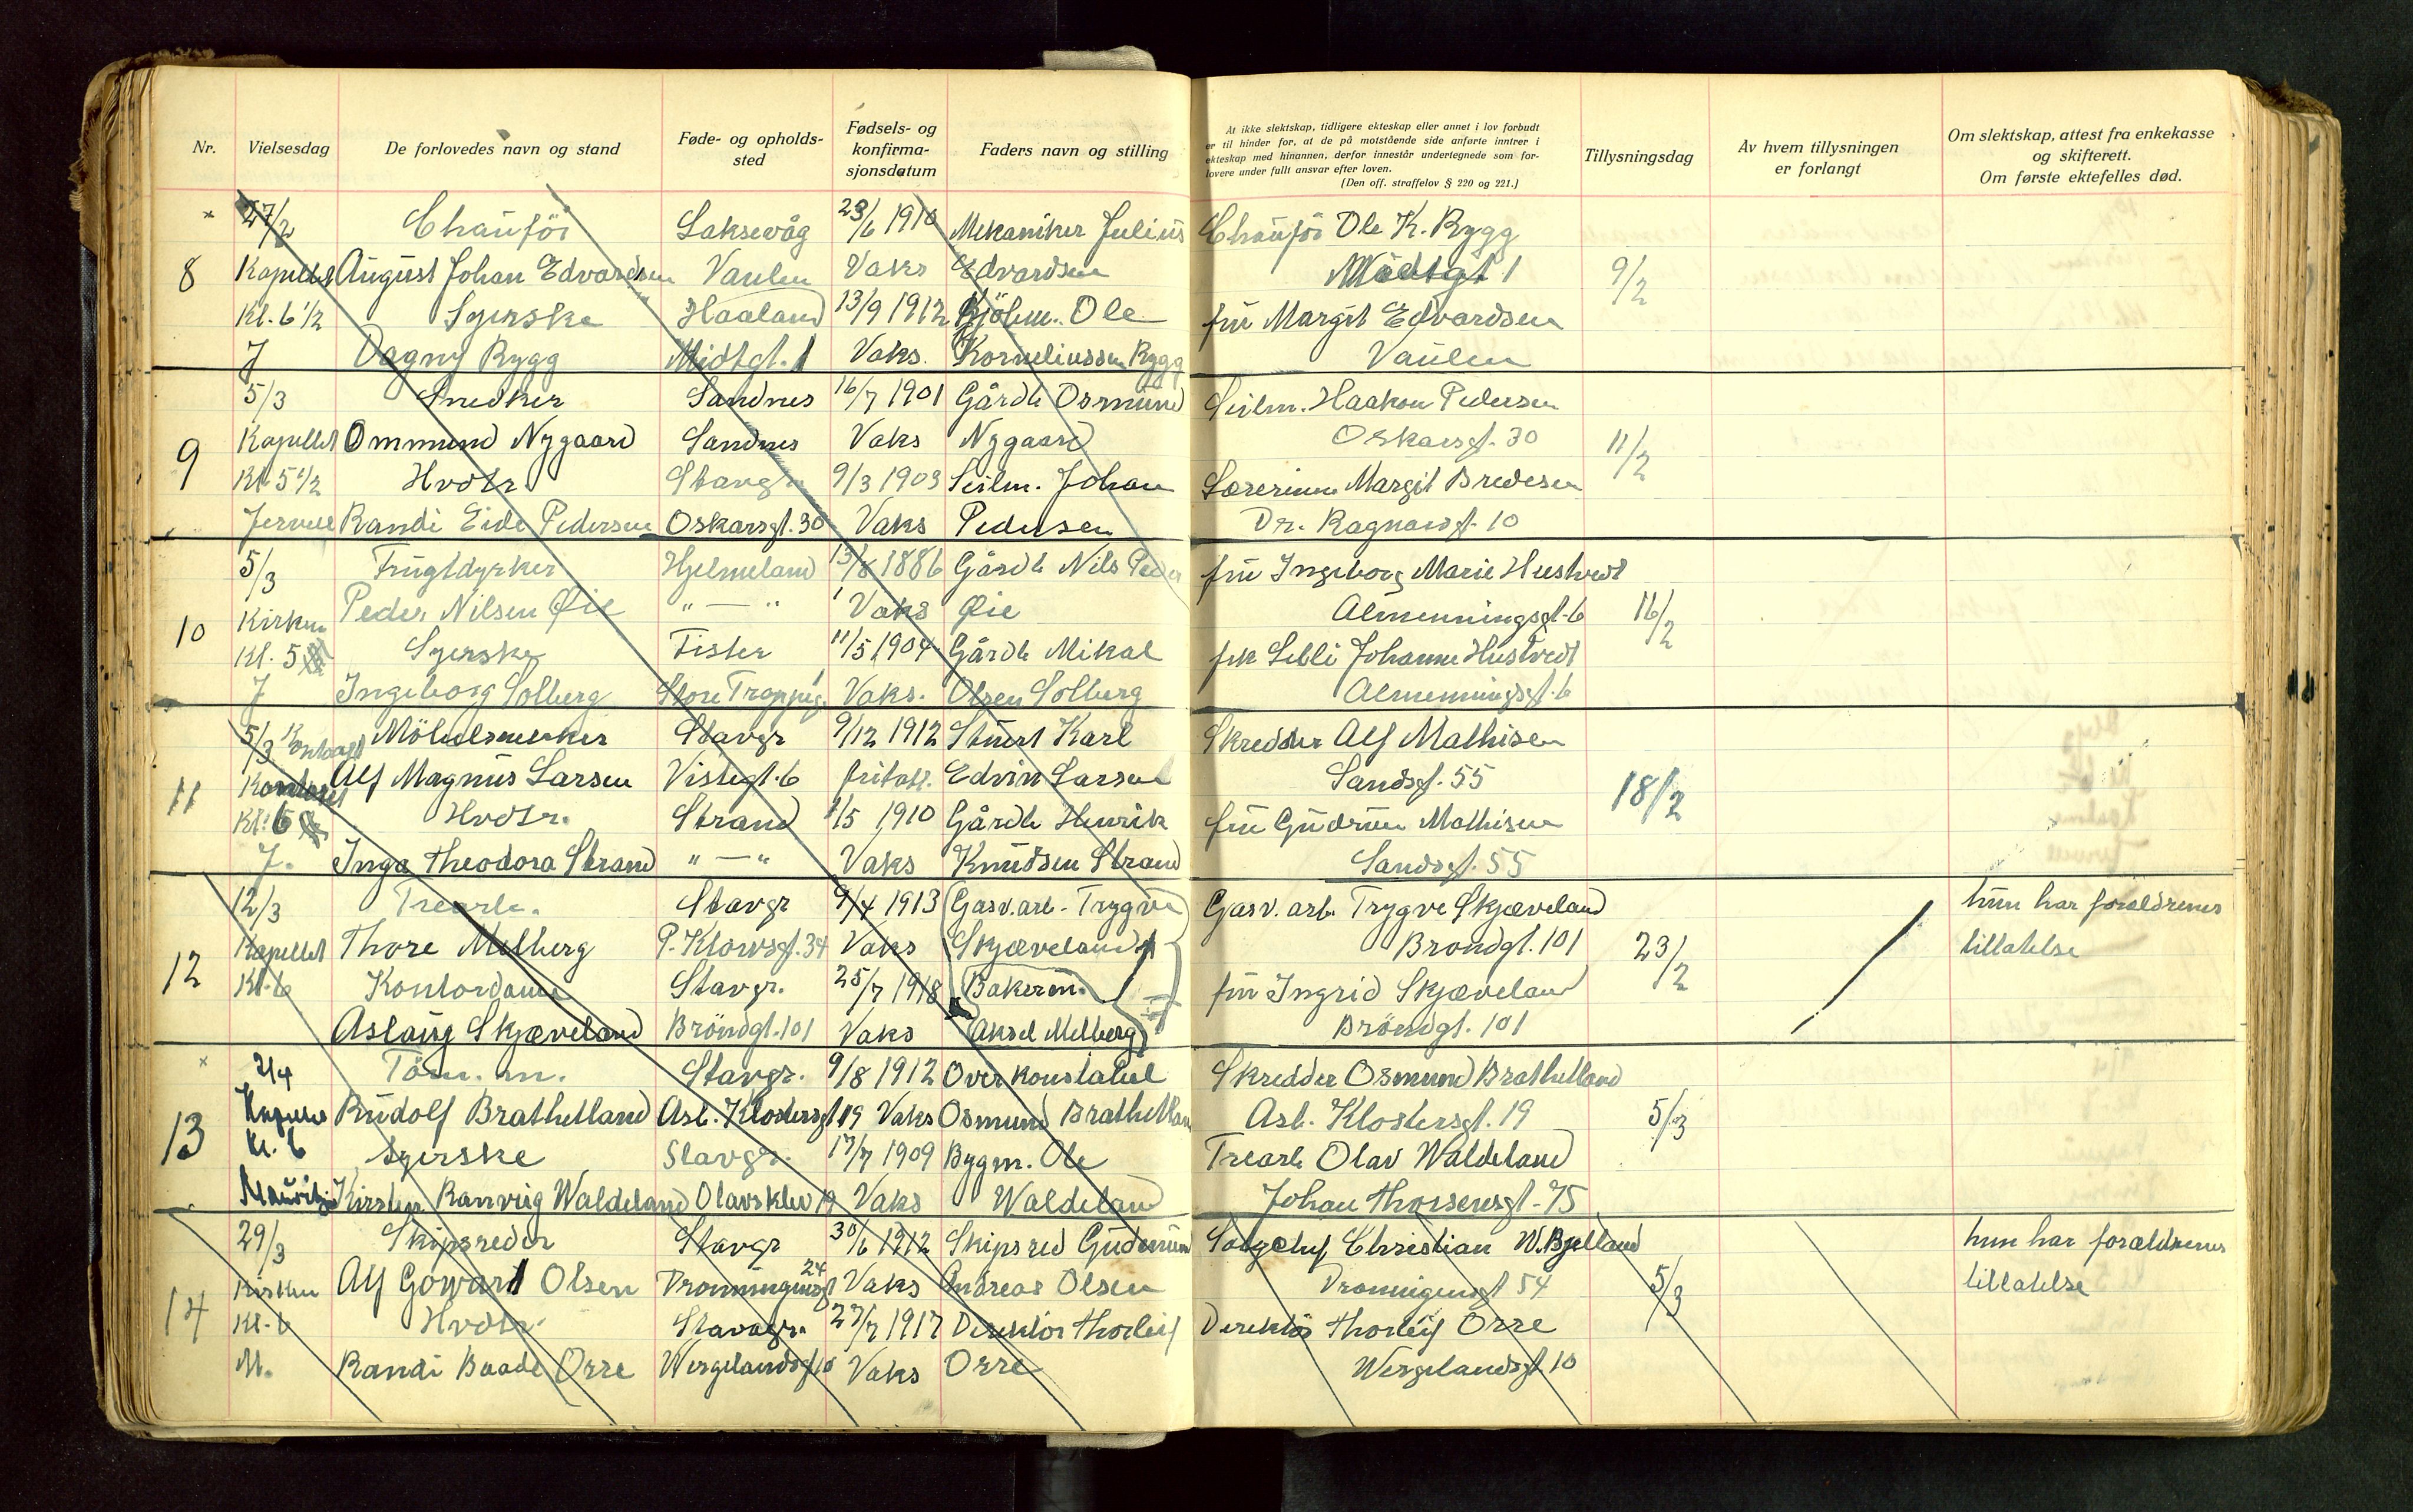 Nr. Vielsesdag De forlovedes navn og stand Føde- og opholds-sted Fødsels- og konfirma-sjonsdatum Faders navn og stilling
At ikke slektskap, tidligere ekteskap eller annet i lov forbudt
er til hinder for, at de på motstående side anførte inntrer i
ekteskap med hinannen, derfor innestår undertegnede som for-
lovere under fullt ansvar efter loven.
(Den off. straffelov § 220 og 221.)
Tillysningsdag
Av hvem tillysningen
er forlangt
Om slektskap, attest fra enkekasse
og skifterett.
Om første ektefelles død.
27/2 Chauför Laksevåg 23/6 1910 Mekaniker Julius Chauför Ole K. Rygg
8 Kapellet August Johan Edvardsen Vaulen Vaks Edvardsen Midtgt 1 9/2
Kl. 6 1/2 Syerske Haaland 13/9 1912 Kjöbm. Ole fru Margit Edvardsen
J Dagny Rygg Midtgt. 1 Vaks. Korneliussen Rygg Vaulen
5/3 Snedker Sandnes 16/7 1901 Gårdb Osmund Seilm. Haakon Pedersen
9 Kapellet Ommund Nygaard Sandnes Vaks Nygaard Oskarsgt. 30 11/2
Kl 5 1/2 Hvdtr. Stavgr 9/3 1903 Seilm. Johan Lærerinne Margit Bredesen
Randi Eide Pedersen Oskarsgt. 30 Vaks Pedersen Dr. Ragnarsgt. 10
5/3 Frugtdyrker Hjelmeland 13/8 1886 Gårdb Nils Peder fru Ingeborg Marie Hustvedt
10 Kirken Peder Nilsen Øie " — " Vaks Øie Almenningsgt. 6 16/2
Kl. 5 Syerske Fister 11/5 1904 Gårdb Mikal frk Lelli Johanne Hustvedt
J Ingeborg Solberg Store Trappeg. Vaks. Olsen Solberg Almenningsgt. 6
5/3 Kontoret Möbelsnekker Stavgr 9/12 1912 Stuert Karl Skredder Alf Mathisen
11 Kontoret Alf Magnus Larsen Vistegt. 6 fritatt. Edvin Larsen Sandsgt. 55 18/2
Kl. 6 Hvdtr. Strand 1/5 1910 Gårdb Henrik fru Gudrun Mathisen
J. Inga Theodora Strand " — " Vaks Knudsen Strand Sandsgt. 55
12/3 Trearb. Stavgr 9/4 1913 Gasv. arb. Trygve Gasv. arb. Trygve Skjæveland hun har foreldrenes
12 Kapellet Thore Melberg P. Klowsgt. 34 Vaks Skjæveland Brøndgt. 101 23/2 tillatelse
Kl. 6 Kontordame Stavgr. 25/7 1918 Bakerm. fru Ingrid Skjæveland
Aslaug Skjæveland Bröndgt. 101 Vaks Aksel Melberg Bröndgt. 101
2/4 Töm. m. Stavgr. 9/8 1912 Overkonstabel Skredder Osmund Brathetland
13 Kapellet Rudolf Brathetland Asb. Klostersgt 19 Vaks Osmund Brathetland Asb. Klostersgt. 19 5/3
Kl. 6 Syerske Stavgr. 17/7 1909 Bygm. Ole Trearb Olav Waldeland
Kirsten Ranveig Waldeland Olavsklev 19 Vaks Waldeland Johan Thorsensgt. 75
29/3 Skipsreder Stavgr 30/6 1912 Skipsred Gudmund Salgschef Christian W. Bjelland hun har forældrenes
14 Kirken Alf Gowart Olsen Dronningensgt 24 Vaks Andreas Olsen Dronnigensgt 54 5/3 tillatelse
Kl. 6 Hvdtr. Stavgr. 27/7 1917 Direktör Thorleif Direktör Thorleif Orre
M. Randi Baade Orre Wergelandsgt 10 Vaks Orre Wergelandsgt 10